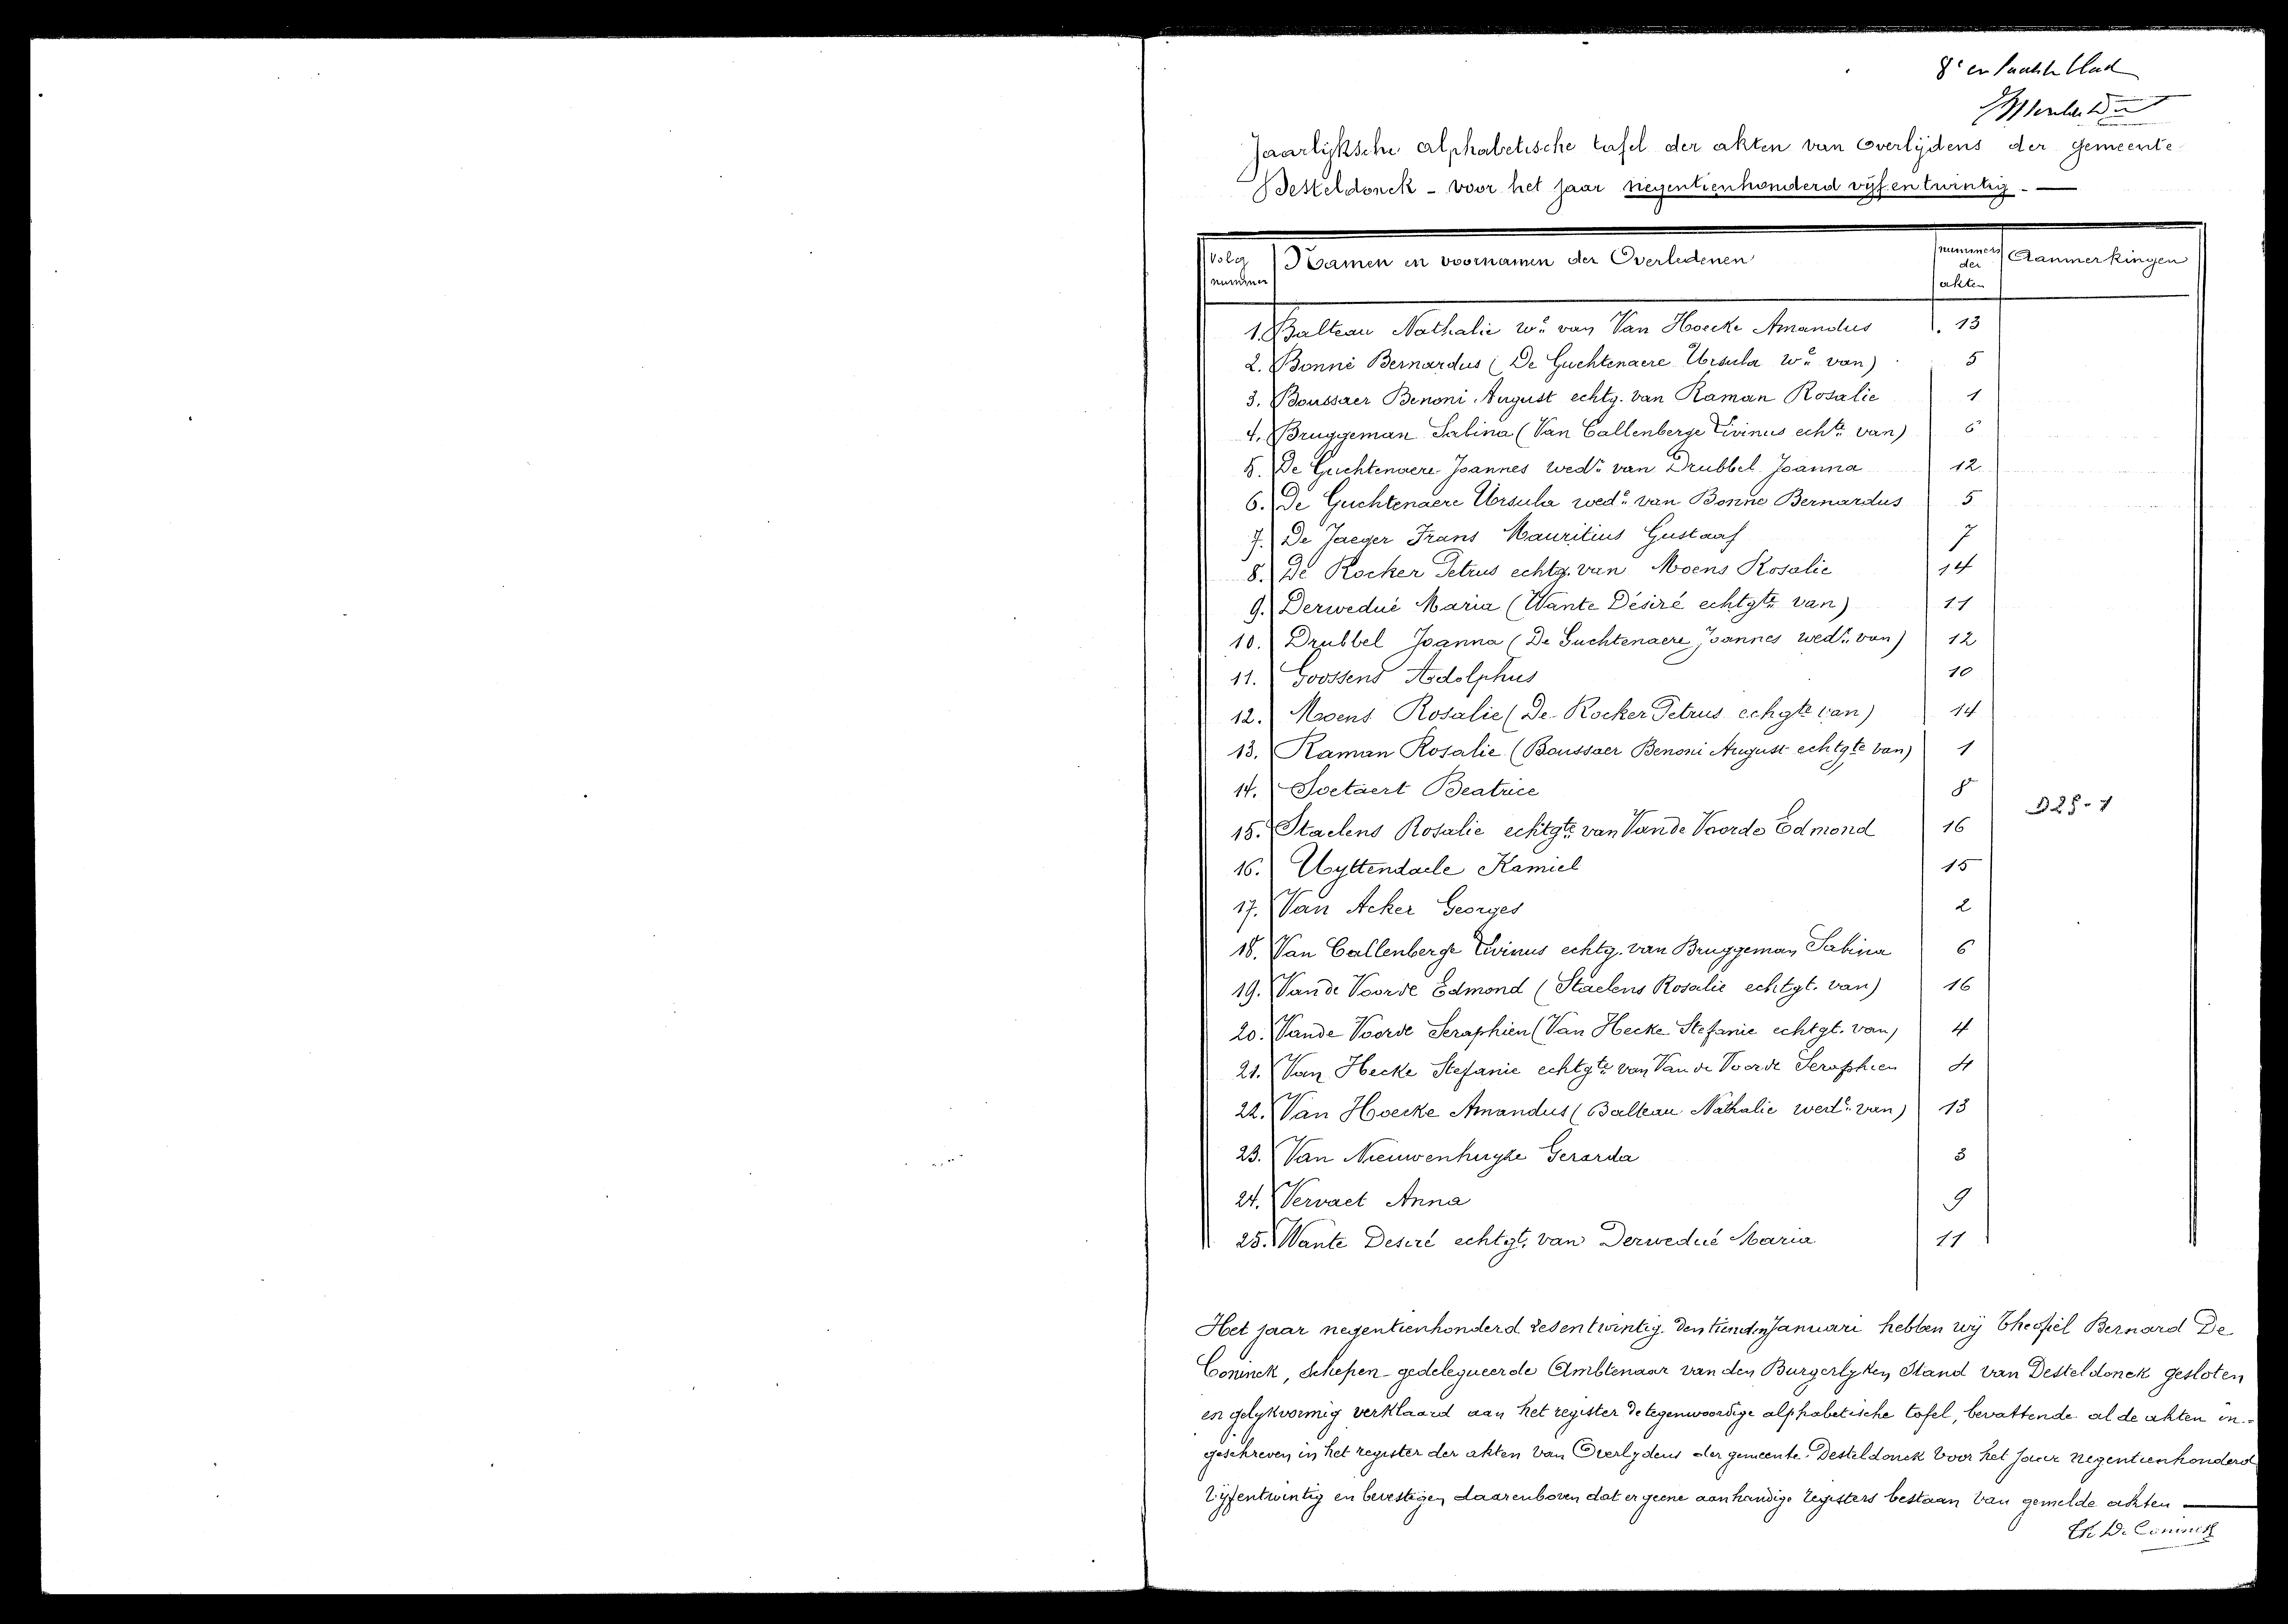 8e en laatste blad
Jaarlijksche alphabetische tafel der akten van Overlijdens der gemeente
Desteldonck - voor het jaar negentienhonderd vijfentwintig. —
Volg nummer | Namen en voornamen der Overledenen | nummers der akten | Aanmerkingen
1. Balteau Nathalie we van Van Hoecke Amandus 13
2. Bonné Bernardus (De Guchtenaere Ursula we van) 5
3. Boussaer Benoni August echtg. van Raman Rosalie 1
4. Bruggeman Sabina (Van Callenberge Livinus echte van) 6
5. De Guchtenaere Joannes wedr van Drubbel Joanna 12
6. De Guchtenaere Ursula wede van Bonne Bernardus 5
7. De Jaeger Frans Mauritius Gustaaf 7
8. De Rocker Petrus echtg. van Moens Rosalie 14
9. Derwedué Maria (Wante Désiré echtgte van) 11
10. Drubbel Joanna (De Guchtenaere Joannes wedr van) 12
11. Goossens Adolphus 10
12. Moens Rosalie (De Rocker Petrus echgte van) 14
13. Raman Rosalie (Boussaer Benoni August echtgte van) 1
14. Soetaert Beatrice 8
D25-1
15. Staelens Rosalie echtgte van Van de Voorde Edmond 16
16. Uyttendaele Kamiel 15
17. Van Acker Georges 2
18. Van Callenberge Livinus echtg. van Bruggeman Sabina 6
19. Van de Voorde Edmond (Staelens Rosalie echtgt. van) 16
20. Van de Voorde Seraphien (Van Hecke Stefanie echtgt. van) 4
21. Van Hecke Stefanie echtgte van Van de Voorde Seraphien 4
22. Van Hoecke Amandus (Balteau Nathalie wede van) 13
23. Van Nieuwenhuyze Gerarda 3
24. Vervaet Anna 9
25. Wante Desiré echtgt. van Derwedué Maria 11
Het jaar negentienhonderd zesentwintig den tienden Januari hebben wij Theofiel Bernard De
Coninck, Schepen-gedelegueerde Ambtenaar van den Burgerlyken Stand van Desteldonck gesloten
en gelykvormig verklaard aan het register de tegenwoordige alphabetische tafel, bevattende al de akten in-
geschreven in het register der akten van Overlydens der gemeente Desteldonck voor het jaar negentienhonderd
vyfentwintig en bevestigen daarenboven dat er geene aanhandige registers bestaan van gemelde akten —
Th. De Coninck